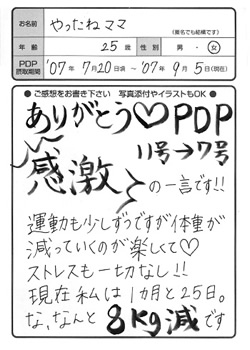 お名前 やったねママ
(匿名でも結構です)
年齢 25歳 性別 男・女
PDP摂取期間 '07年7月20日頃〜'07年9月5日(現在)
●ご感想をお書き下さい 写真添付やイラストもOK●
ありがとう♡PDP
11号→7号
感激の一言です!!
運動も少しずつですが体重が
減っていくのが楽しくて♡
ストレスも一切なし!!
現在私は1カ月と25日。
な、なんと8Kg減です